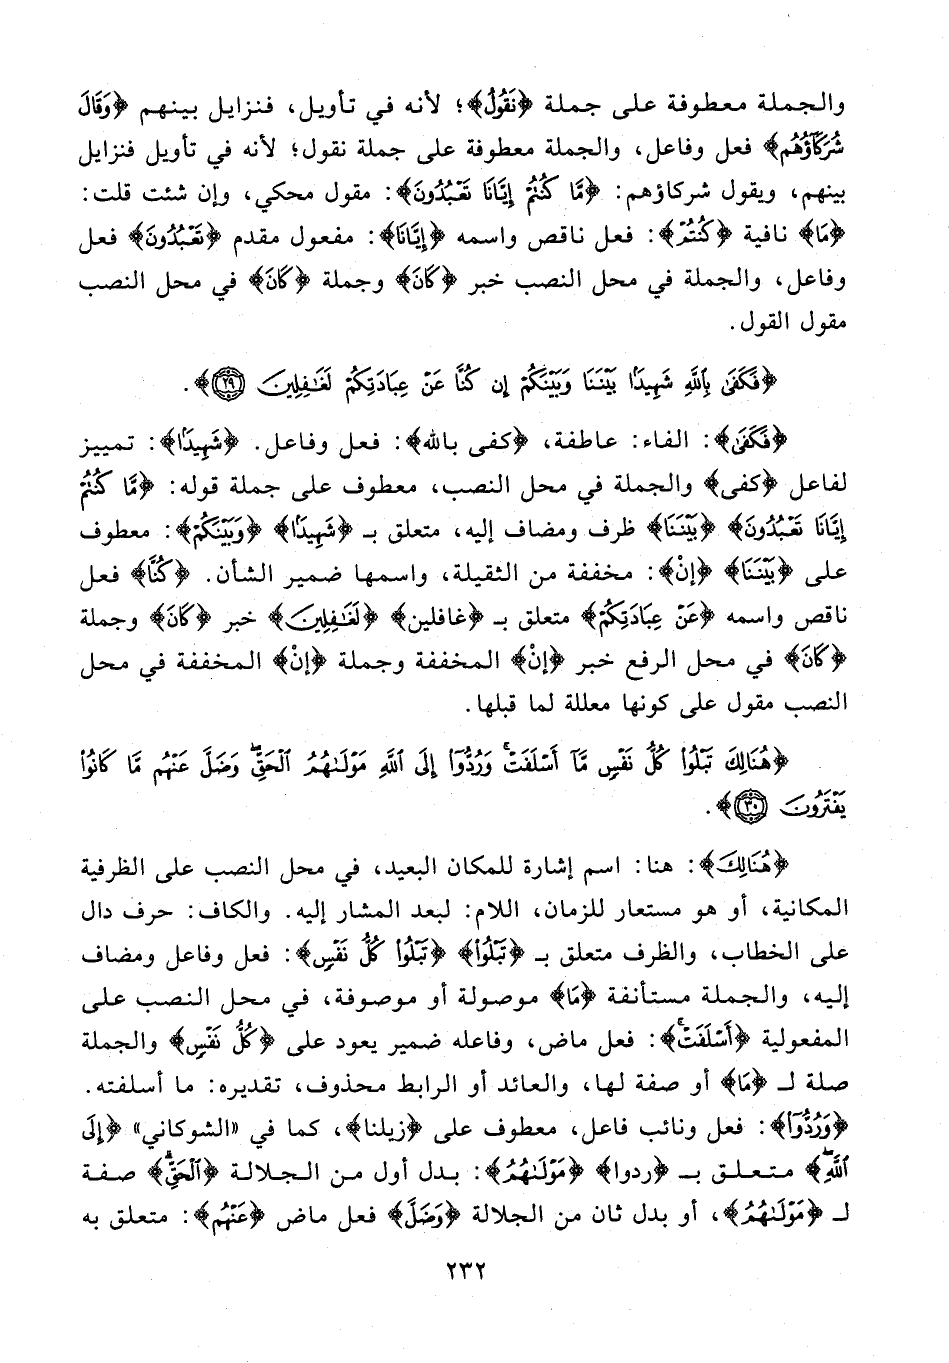 والجملة معطوفة على جملة ﴿نَقُولُ﴾؛ لأنه في تأويل، فنزايل بينهم ﴿وَقَالَ
شُرَكَآؤُهُم﴾ فعل وفاعل، والجملة معطوفة على جملة نقول؛ لأنه في تأويل فنزايل
بينهم، ويقول شركاؤهم: ﴿مَّا كُنتُمْ إِيَّانَا تَعْبُدُونَ﴾: مقول محكي، وإن شئت قلت:
﴿مَا﴾ نافية ﴿كُنتُمْ﴾: فعل ناقص واسمه ﴿إِيَّانَا﴾: مفعول مقدم ﴿تَعْبُدُونَ﴾ فعل
وفاعل، والجملة في محل النصب خبر ﴿كَانَ﴾ وجملة ﴿كَانَ﴾ في محل النصب
مقول القول.
﴿فَكَفَىٰ بِٱللَّهِ شَهِيدًا بَيْنَنَا وَبَيْنَكُمْ إِن كُنَّا عَنْ عِبَادَتِكُمْ لَغَـٰفِلِينَ ٢٩﴾.
﴿فَكَفَىٰ﴾: الفاء: عاطفة، ﴿كفى بالله﴾: فعل وفاعل. ﴿شَهِيدًا﴾: تمييز
لفاعل ﴿كفى﴾ والجملة في محل النصب، معطوف على جملة قوله: ﴿مَّا كُنتُمْ
إِيَّانَا تَعْبُدُونَ﴾ ﴿بَيْنَنَا﴾ ظرف ومضاف إليه، متعلق بـ ﴿شَهِيدًا﴾ ﴿وَبَيْنَكُمْ﴾: معطوف
على ﴿بَيْنَنَا﴾ ﴿إِنْ﴾: مخففة من الثقيلة، واسمها ضمير الشأن. ﴿كُنَّا﴾ فعل
ناقص واسمه ﴿عَنْ عِبَادَتِكُمْ﴾ متعلق بـ ﴿غافلين﴾ ﴿لَغَـٰفِلِينَ﴾ خبر ﴿كَانَ﴾ وجملة
﴿كَانَ﴾ في محل الرفع خبر ﴿إِنْ﴾ المخففة وجملة ﴿إِنْ﴾ المخففة في محل
النصب مقول على كونها معللة لما قبلها.
﴿هُنَالِكَ تَبْلُوا۟ كُلُّ نَفْسٍ مَّآ أَسْلَفَتْ ۚ وَرُدُّوٓا۟ إِلَى ٱللَّهِ مَوْلَىٰهُمُ ٱلْحَقِّ ۖ وَضَلَّ عَنْهُم مَّا كَانُوا۟
يَفْتَرُونَ ٣٠﴾.
﴿هُنَالِكَ﴾: هنا: اسم إشارة للمكان البعيد، في محل النصب على الظرفية
المكانية، أو هو مستعار للزمان، اللام: لبعد المشار إليه. والكاف: حرف دال
على الخطاب، والظرف متعلق بـ ﴿تَبْلُوا۟﴾ ﴿تَبْلُوا۟ كُلُّ نَفْسٍ﴾: فعل وفاعل ومضاف
إليه، والجملة مستأنفة ﴿مَا﴾ موصولة أو موصوفة، في محل النصب على
المفعولية ﴿أَسْلَفَتْ ۚ﴾: فعل ماض، وفاعله ضمير يعود على ﴿كُلُّ نَفْسٍ﴾ والجملة
صلة لـ ﴿مَا﴾ أو صفة لها، والعائد أو الرابط محذوف، تقديره: ما أسلفته.
﴿وَرُدُّوٓا۟﴾: فعل ونائب فاعل، معطوف على ﴿زيلنا﴾، كما في «الشوكاني» ﴿إِلَى
ٱللَّهِ﴾ متعلق بـ ﴿ردوا﴾ ﴿مَوْلَىٰهُمُ﴾: بدل أول من الجلالة ﴿ٱلْحَقِّ﴾ صفة
لـ ﴿مَوْلَىٰهُمُ﴾، أو بدل ثان من الجلالة ﴿وَضَلَّ﴾ فعل ماض ﴿عَنْهُم﴾: متعلق به
٢٣٢